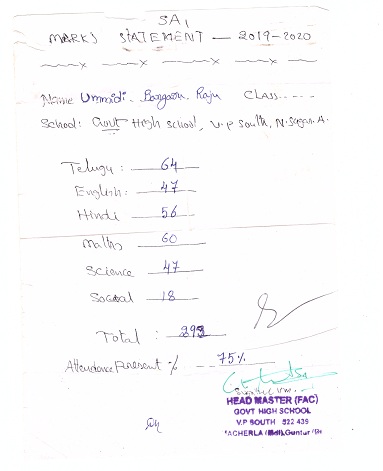 SA1
MARKS STATEMENT — 2019-2020
Name Ummidi. Bangaru Raju CLASS.....
School: Govt High school, V.P South, N.Sagar.A.
Telugu : 64
English: 47
Hindi 56
Maths 60
Science 47
Social 18
Total : 292
Attendance Present % 75%
HEAD MASTER (FAC)
GOVT HIGH SCHOOL
V.P SOUTH 522 439
ACHERLA (Mdl), Guntur